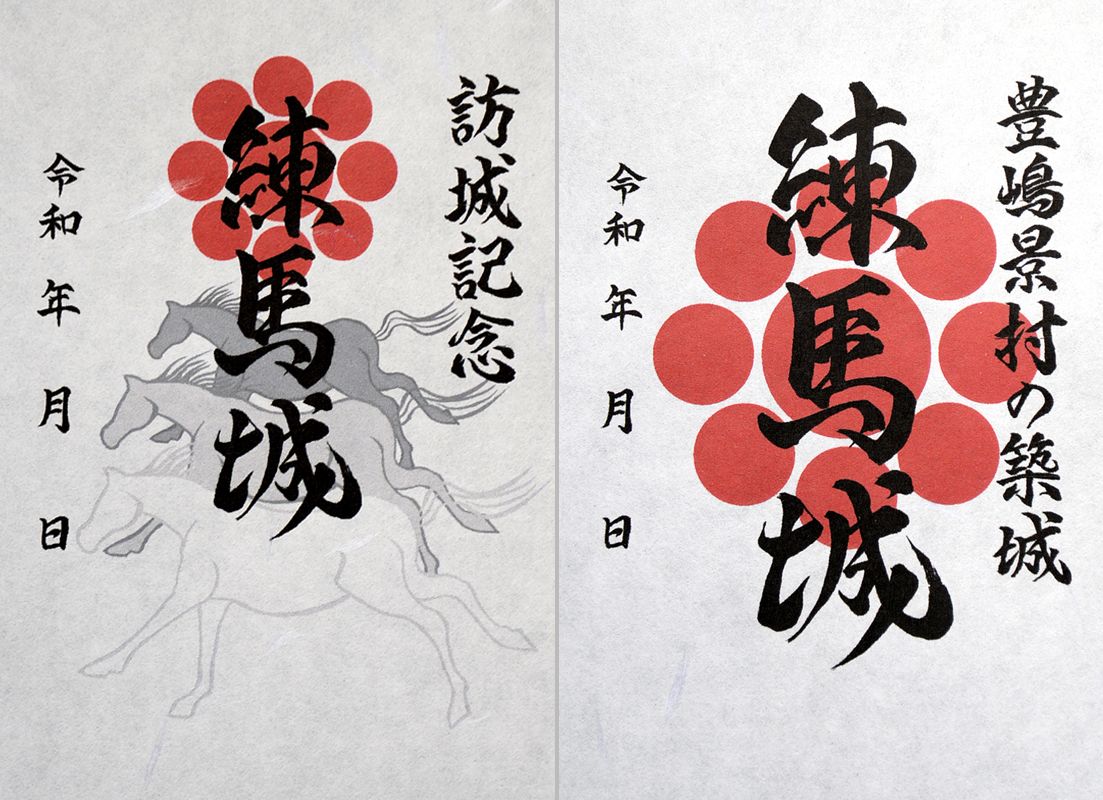 訪城記念
練馬城
令和 年 月 日
豊嶋景村の築城
練馬城
令和 年 月 日